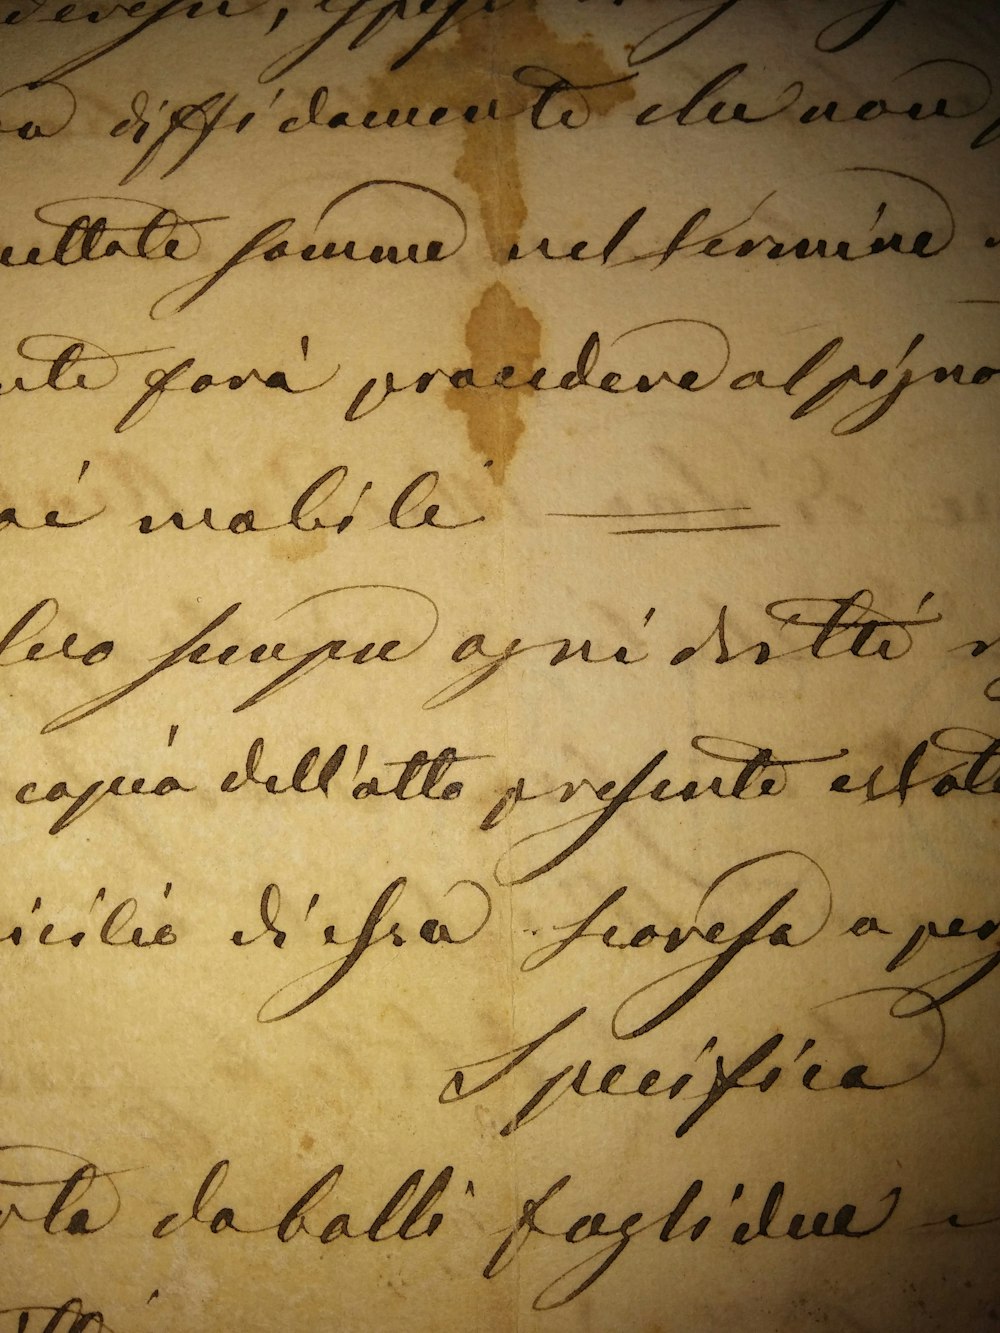 diffidamento che non
nettate somme nel termine
nte farà procedere al pigno
mobile
sempre ogni dritti
copia dell'atto presente è stata
icilio di essa scoresa a per
Specifica
rta da bolli fogli due